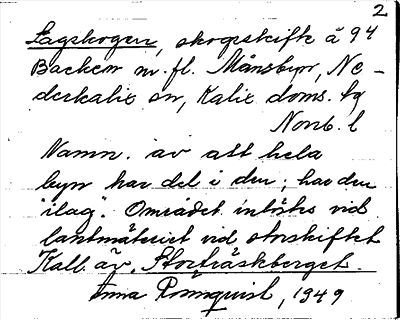 2
Lagskogen, skogsskifte å 94
Backen m. fl. Månsbyn, Ne-
derkalix sn, Kalix doms. tg
Norrb. l
Namn. av att hela
byn har del i den; har den
"ilag". Området intöks vid
lantmäteriet vid storskiftet
Kall. äv. Storträskberget.
Anna Rönnqvist, 1949